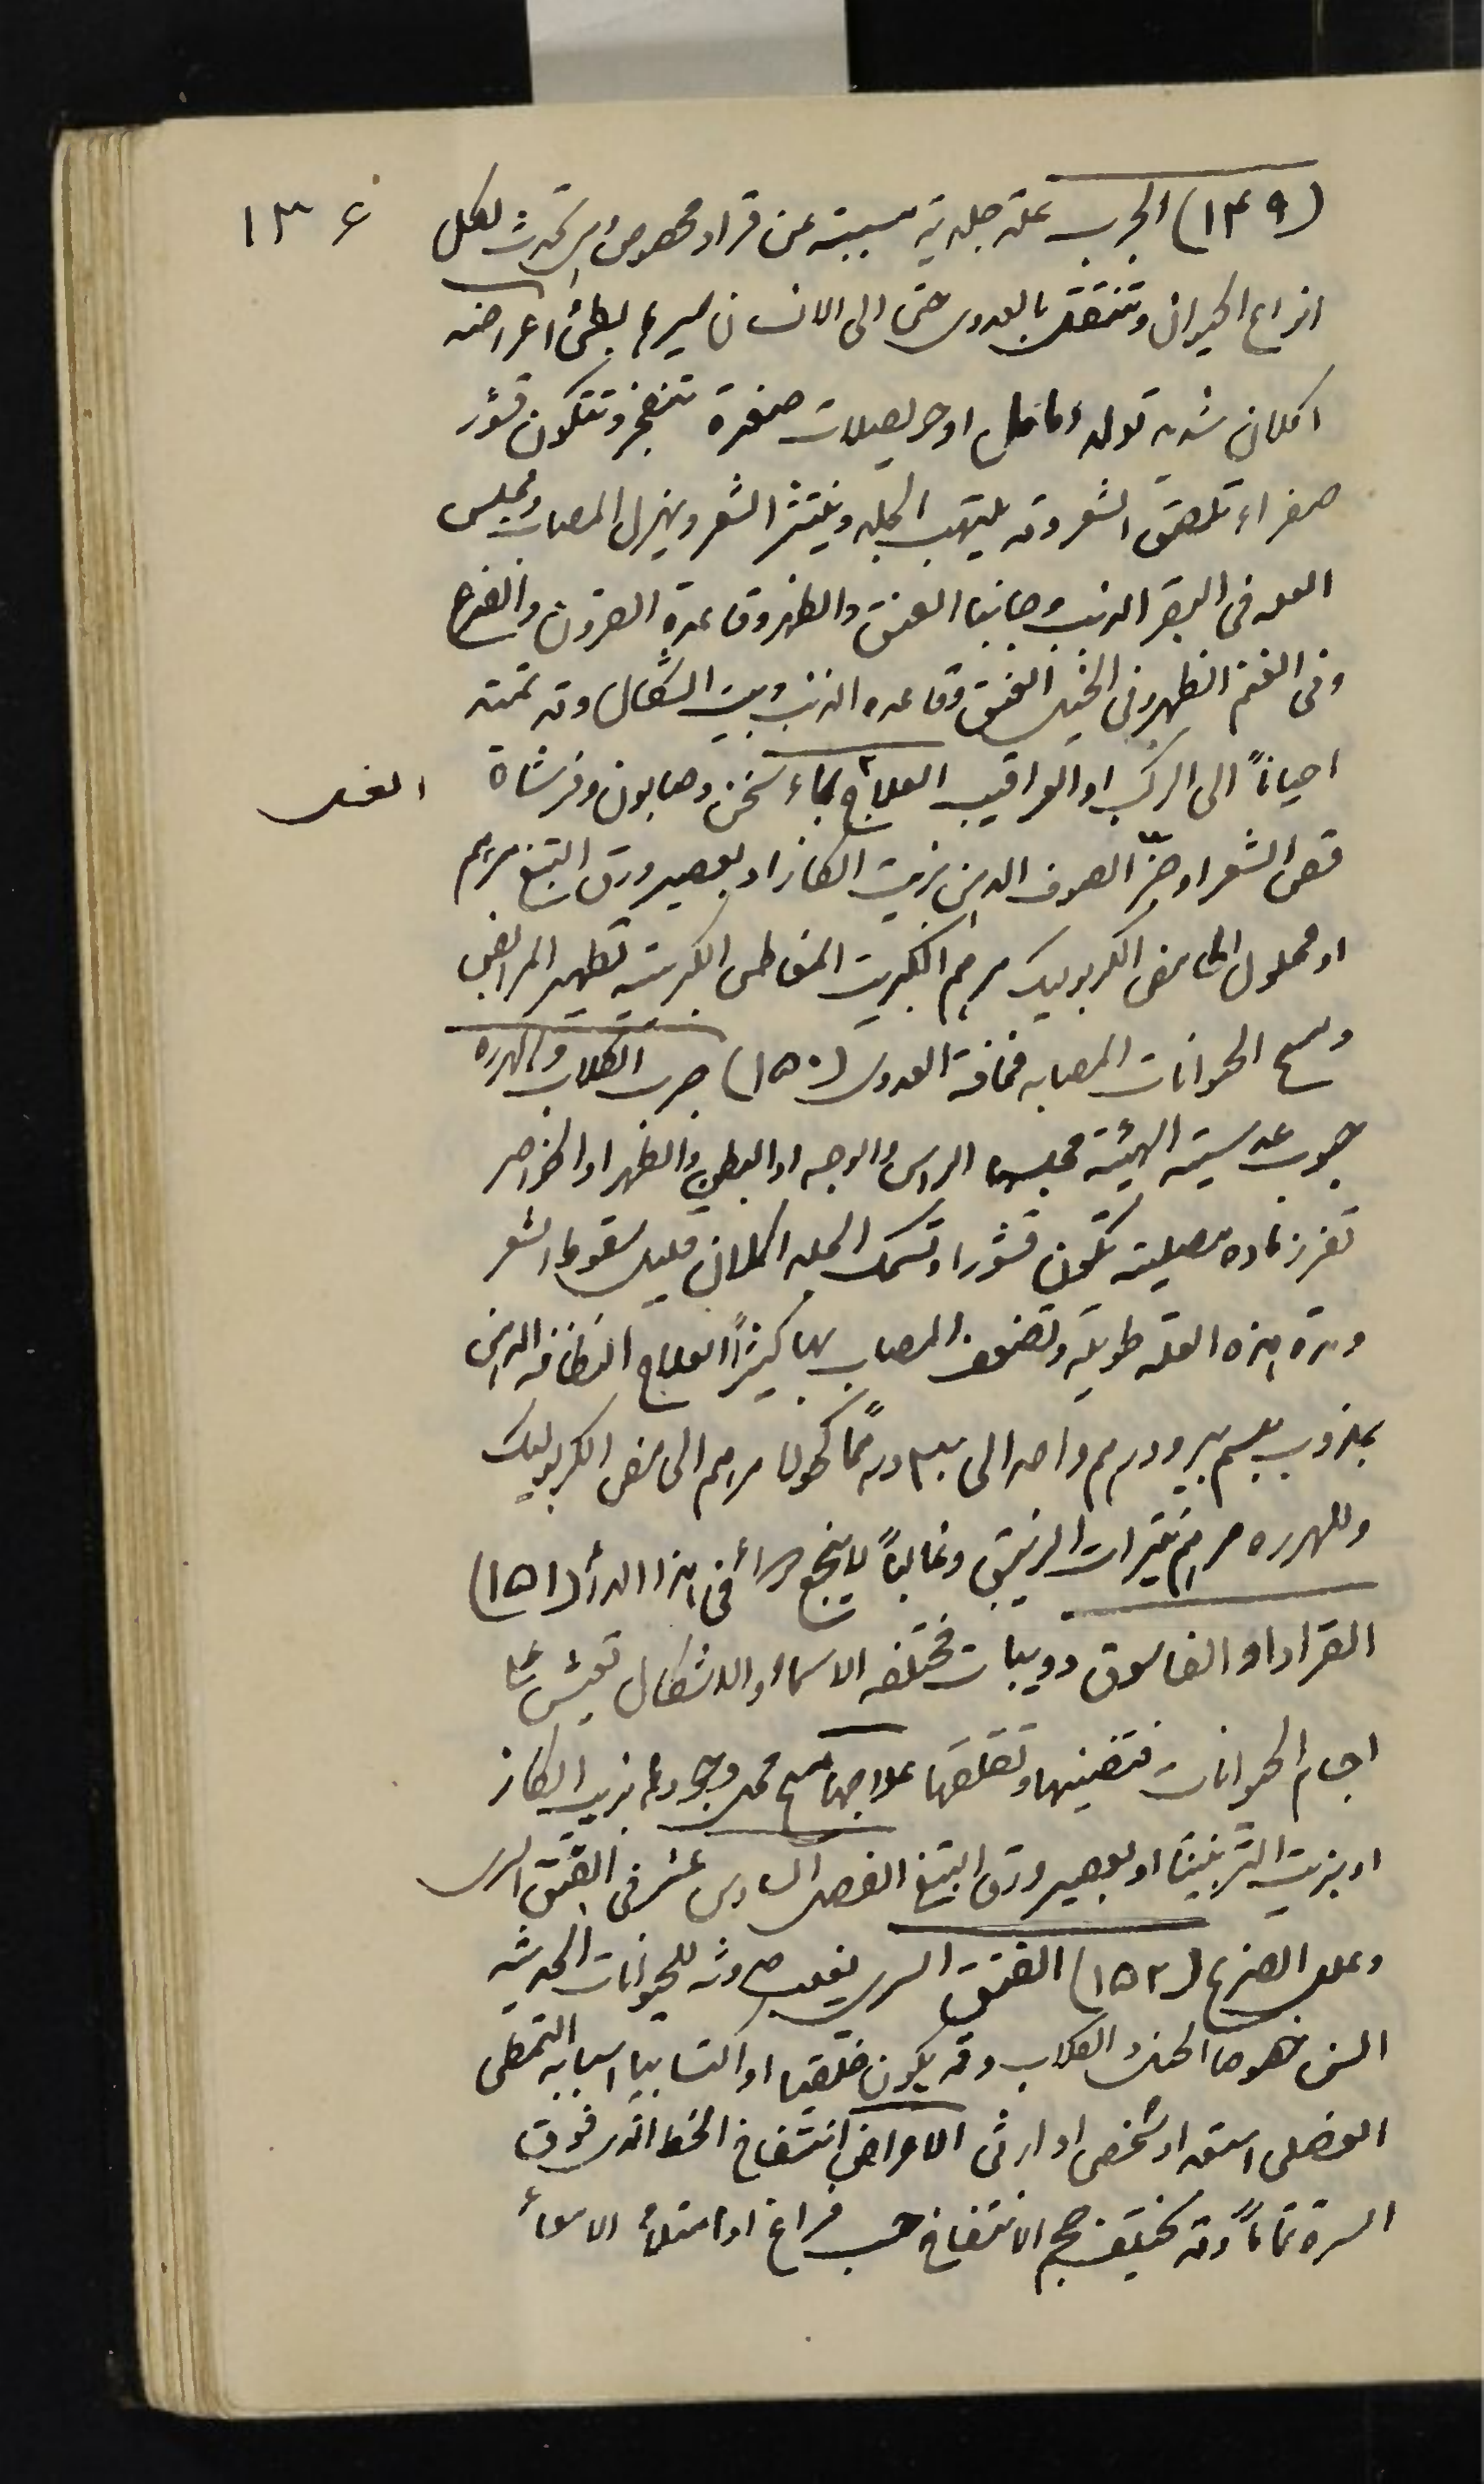 ١٣٤
(١٤٩) الجرب علة جلدية مسببة عن قراد مخصوص تحدث لكل
انواع الحيوان وتنتقل بالعدوى حتى الى الانسان سيرها بطئ اعراضه
اكلان شديد تولد دمامل او حويصلات صغيرة تنفجر وتتكون قشور
صفراء تلصق الشعر وقد يلتهب الجلد وينتثر الشعر ويهزل المصاب ومجلس
العله فى البقر الذنب وجانبا العنق والظهر وقاعدة القرون والضرع
وفى الغنم الظهر وفى الخيل العنق وقاعده الذنب وبيت الشكال وقد تمتد
احياناً الى الركب او العراقيب العلاج بماء سخن وصابون وفرشاة
الغسل
قص الشعر او جزّ الصوف الدهن بزيت الكاز او بعصير ورق التبغ مرهم
او محلول الحامض الكربوليك مرهم الكبريت المغاطس الكبريتيه تطهير المرابض
الحيوانات المصابه مخافة العدوى (١٥٠) جرب الكلاب والهرره
حبوب عدسية الهيئة مجلسها الراس والوجه او البطن والظهر او الخواصر
تفرز ماده مصلية تكون قشورا وتسمك الجلد اكلان قليل سقوط الشعر
ومدة هذه العلة طويلة وتضعف المصاب بها كثيراً العلاج النظافه الدهن
بمذوب بلسم بيرو درهم واحد الى درهماً كحولا مرهم الحامض الكربوليك
وللهرره مرهم نيترات الزيبق وغالباً لا ينجع دواء فى هذا الدأ (١٥١)
القراد او الفاسوق دويبات مختلفه الاسماء والاشكال تعيش على
اجسام الحيوانات فتضنيها وتقلقها علاجها مسح محل وجودها بزيت الكاز
او بزيت التربنتينا او بعصير ورق التبغ الفصل السادس عشر فى الفتق السرى
وعلل الضرع (١٥٢) الفتق السرى يغلب حدوثه للحيوانات الحديثه
السن خصوصا الخيل والكلاب وقد يكون خلقيا او اكتسابيا اسبابه التمطى
العضلى استعداد شخصى او ارثى الاعراض انتفاخ الخط الذى فوق
السرة تماماً وقد يختلف حجم الانتفاخ حسب فراغ او امتلأ الامعأ